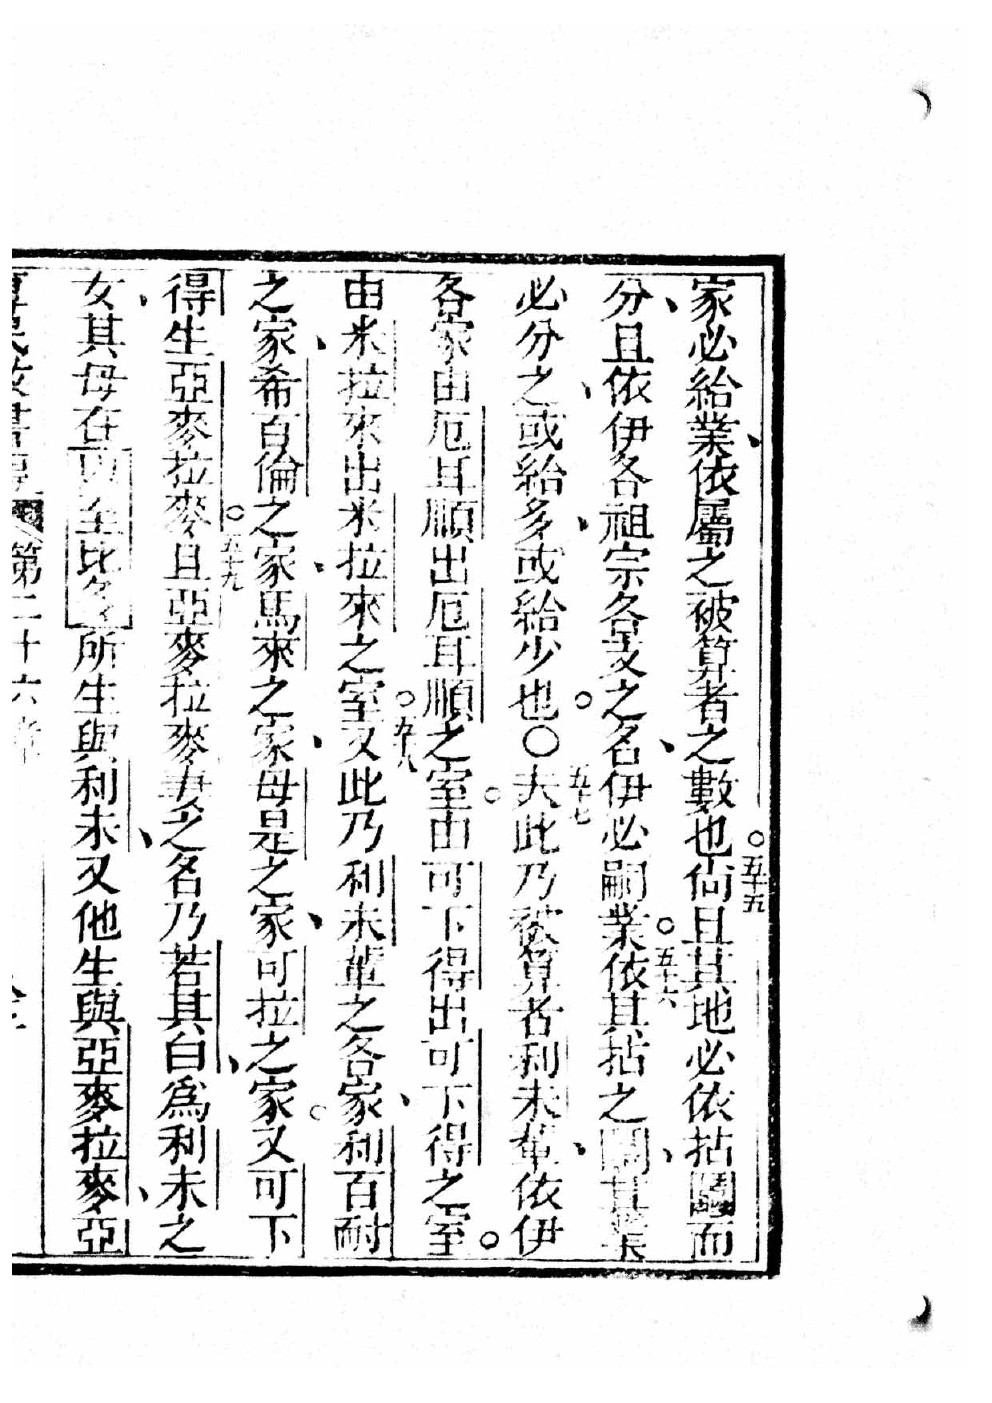 家必給業依屬之被算者之數也尚且其地必依拈鬮而
五十五
分且依伊各祖宗各支之名伊必嗣業依其拈之鬮其業
五十六
必分之或給多或給少也〇夫此乃被算者利未輩依伊
五十七
各家由厄耳順出厄耳順之室由可下得出可下得之室
由米拉來出米拉來之室又此乃利未輩之各家利百耐
五十八
之家希百倫之家馬來之家母是之家可拉之家又可下
得生亞麥拉麥且亞麥拉麥妻之名乃若其白為利未之
五十九
女其母在以至比多所生與利未又他生與亞麥拉麥亞
第二十六章